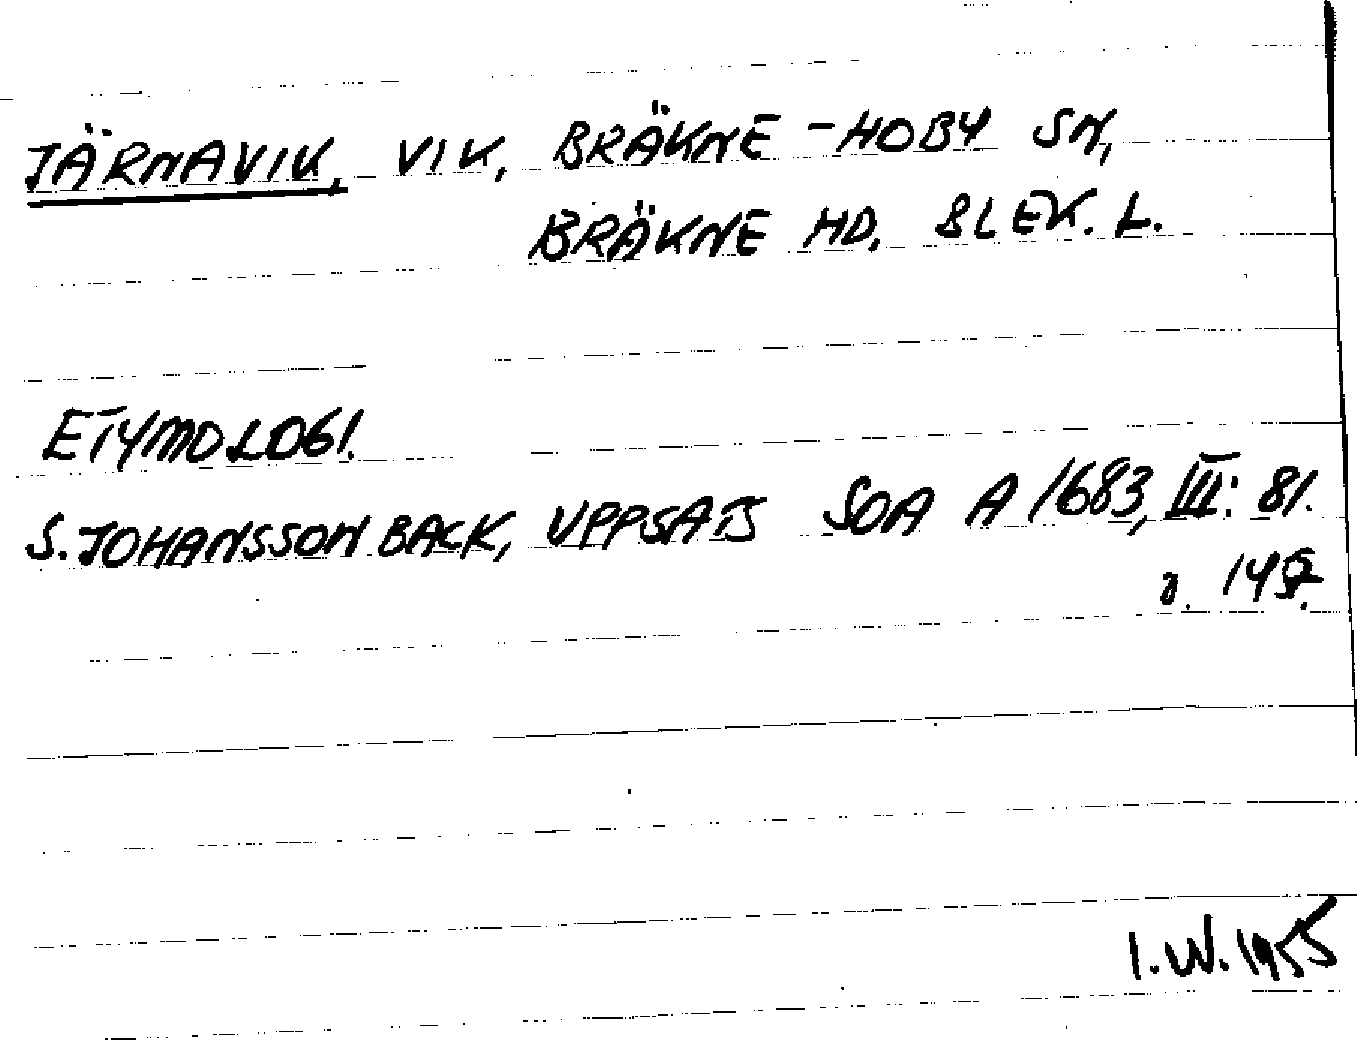 JÄRNAVIK, VIK, BRÄKNE-HOBY SN,
BRÄKNE HD. BLEK. L.
ETYMOLOGI.
S. JOHANSSON BACK, UPPSATS SOA A 1683, III: 81.
o.
I.W. 1955